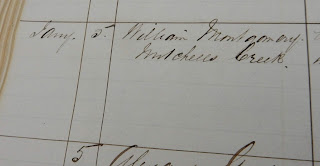 Jany. 5. William Montgomery.
Mitchells Creek.
5